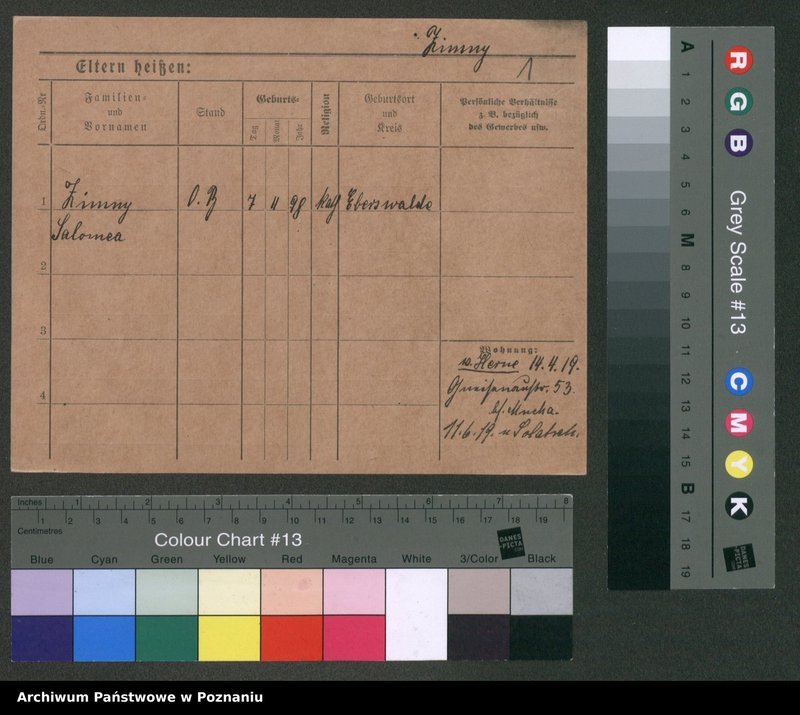 Zimny
1
Eltern heißen:
Ordn.-Nr
Familien-
und
Vornamen
Stand
Geburts-
Tag
Monat
Jahr
Religion
Geburtsort
und
Kreis
Persönliche Verhältnisse
z. B. bezüglich
des Gewerbes usw.
1 Zimny O. B 7 11 98 kath Eberswalde
Salomea
2
3
4
Wohnung:
v. Herne 14.4.19.
Gneisenaustr. 53
bf. Mucha.
11.6.19. n
Inches 1 2 3 4 5 6 7 8
Centimetres 1 2 3 4 5 6 7 8 9 10 11 12 13 14 15 16 17 18 19
Colour Chart #13
DANES
PICTA
Blue Cyan Green Yellow Red Magenta White 3/Color Black
A 1 2 3 4 5 6 M 8 9 10 11 12 13 14 15 B 17 18 19
R G B
Grey Scale #13
C M Y K
DANES
PICTA
Archiwum Państwowe w Poznaniu